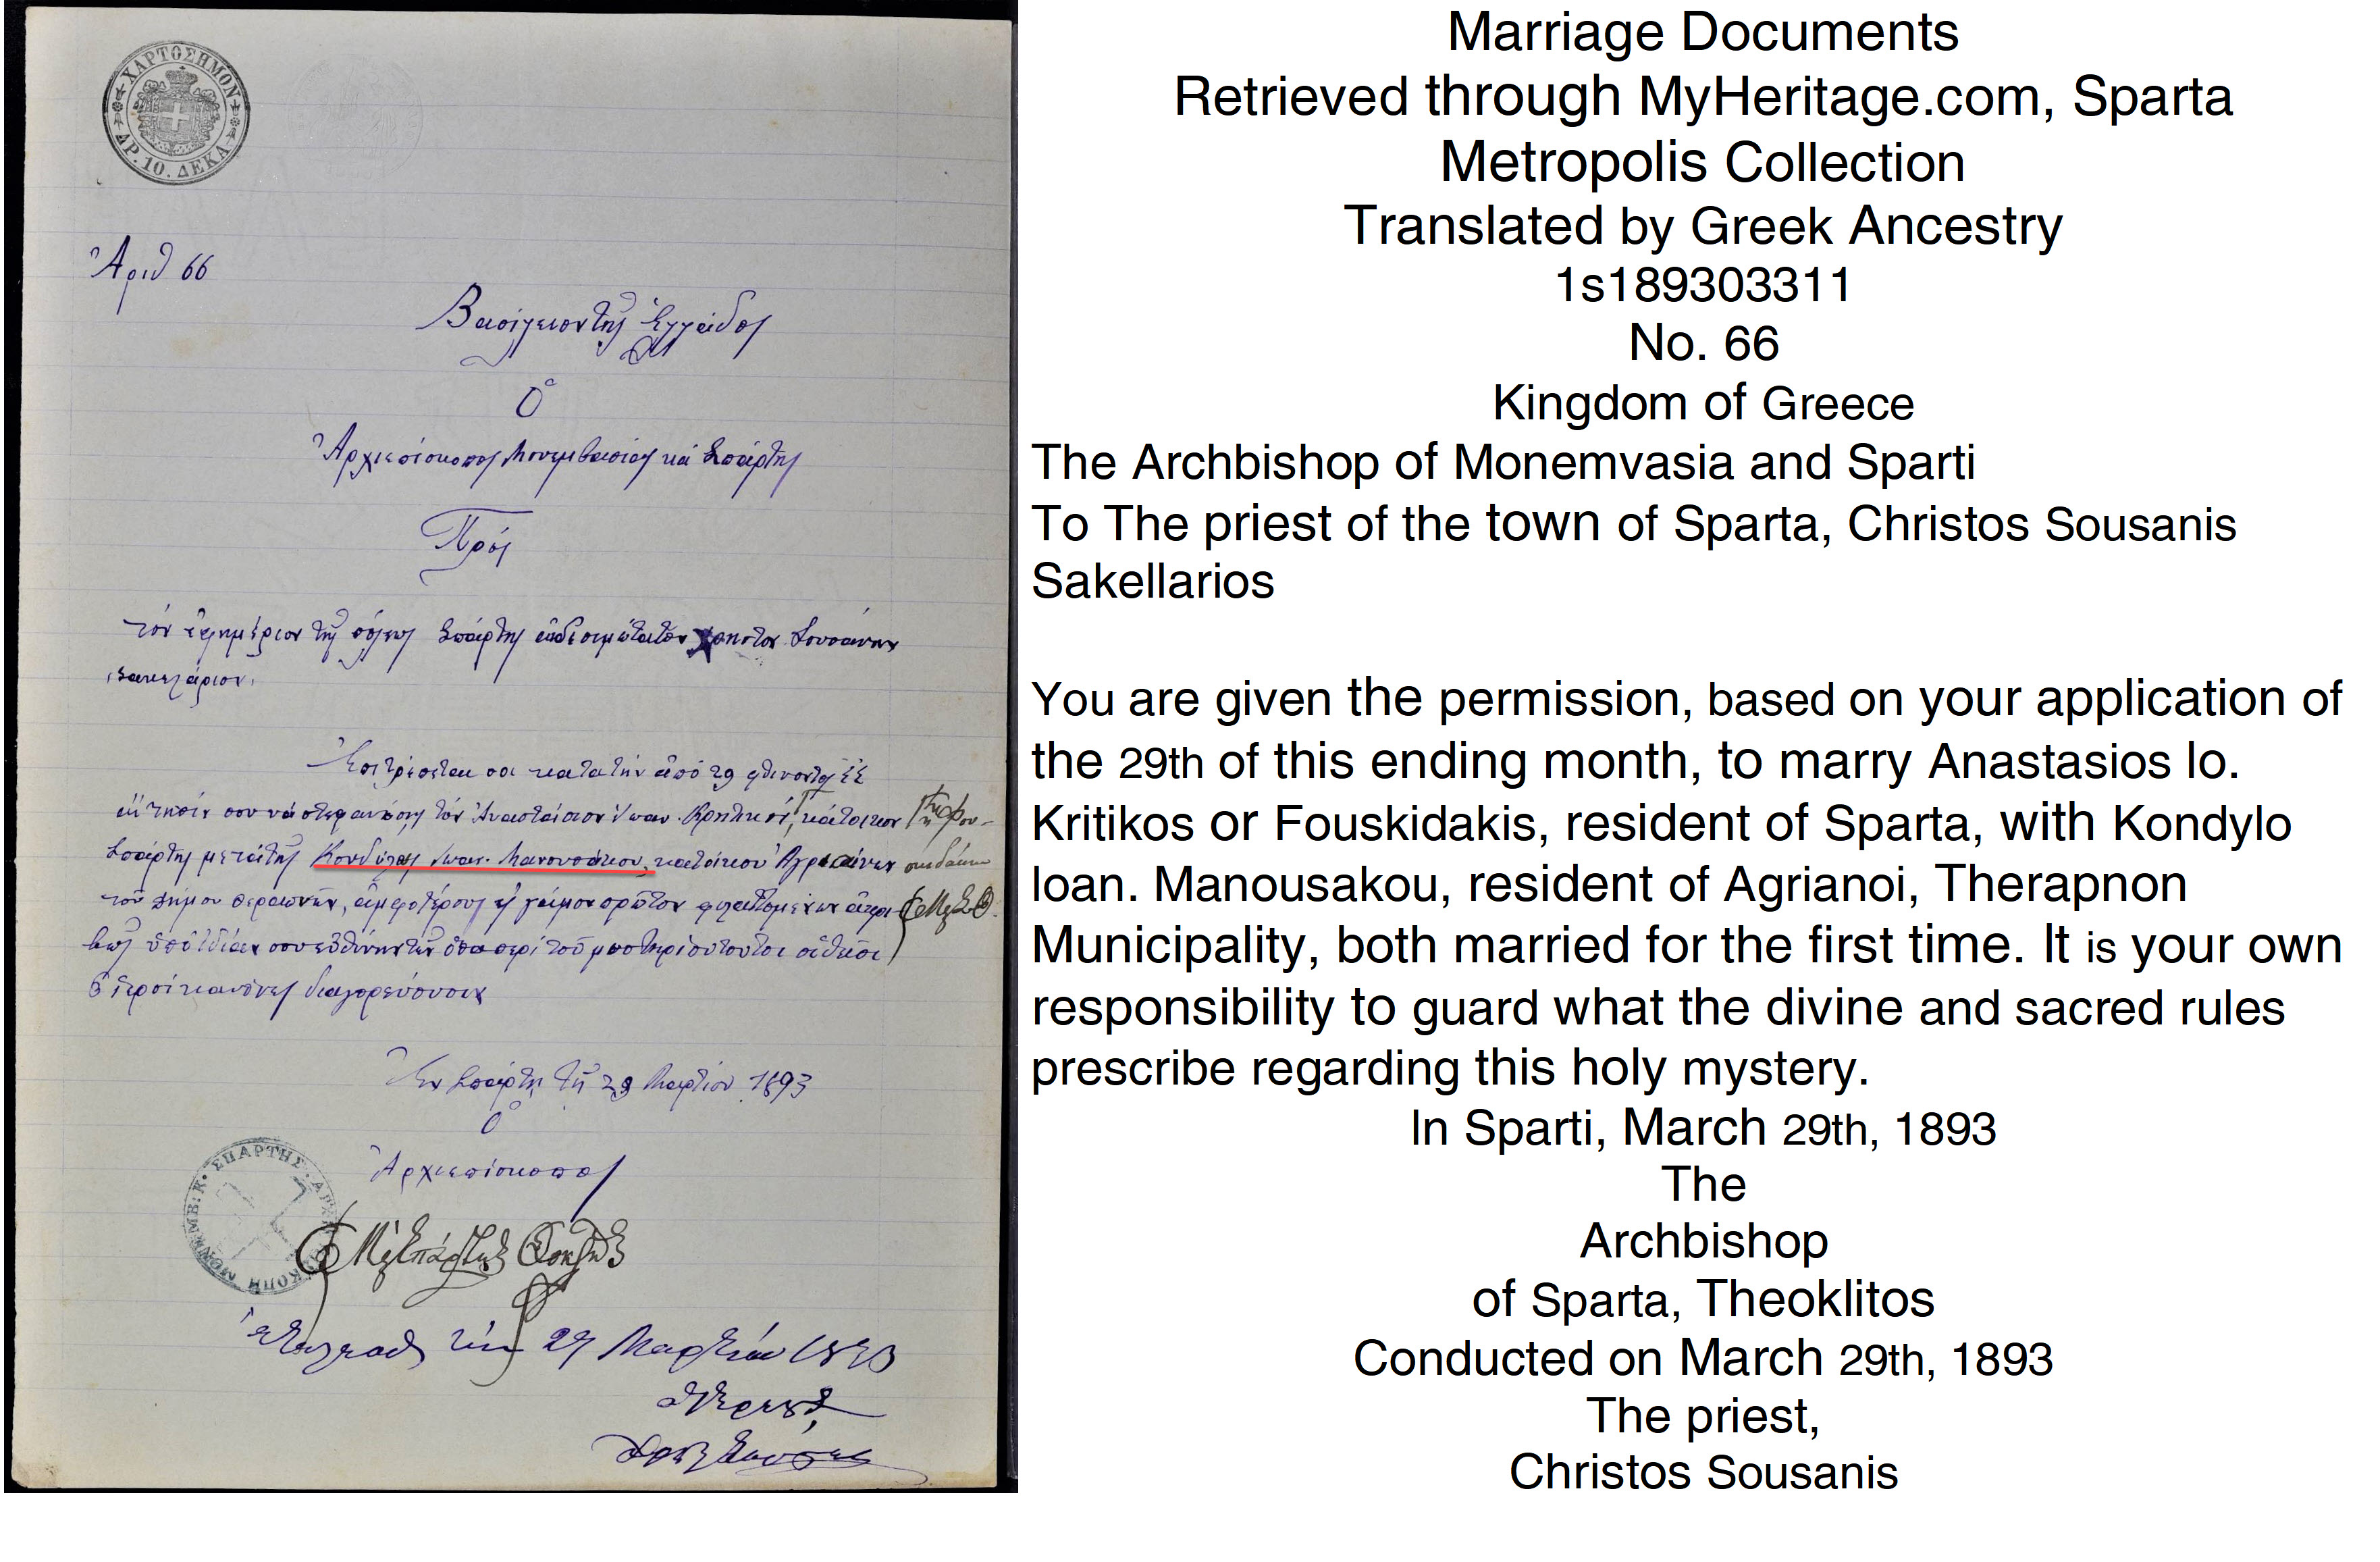 ΧΑΡΤΟΣΗΜΟΝ
ΔΡ. 10. ΔΕΚΑ
Ἀριθ 66
Βασίλειον τῆς Ἑλλάδος
Ὁ
Ἀρχιεπίσκοπος Μονεμβασίας καὶ Σπάρτης
Πρός
τόν ἐφημέριον τῆς πόλεως Σπάρτης αἰδεσιμώτατον Χρηστον Σουσάνην
Σακελλάριον.
Ἐπιτρέπεται σοι κατὰ τὴν ἀπό 29 φθίνοντος
αἴτησίν σου νὰ στεφανώσῃς τόν Ἀναστάσιον Ἰωαν. Κρητικόν, κάτοικον
ἢ Φου-
Σπάρτης μετὰ τῆς Κονδύλως Ἰωαν. Μανουσάκου, κατοίκου Ἀγριάνων
σκιδάκην
τοῦ δήμου Θεραπνῶν, ἀμφοτέρους εἰς γάμον πρῶτον φυλαττομένων ἀκρι-
βῶς ὑπὸ ἰδίαν σου εὐθύνην τῶν ὅσα περὶ τοῦ μυστηρίου τούτου οἱ θεῖοι
ἱεροί κανόνες διαγορεύουσιν
Ἐν Σπάρτῃ τῇ 29 Μαρτίου 1893
Ὁ
Ἀρχιεπίσκοπος
ΜΟΝΕΜΒ. Κ. ΣΠΑΡΤΗΣ. ΑΡΧΙΕΠΙΣΚΟΠΗ
Σπάρτης Θεόκλητος
Ἐτελέσθη τὴν 29 Μαρτίου 1893
Ὁ Ἱερεύς
Marriage Documents
Retrieved through MyHeritage.com, Sparta
Metropolis Collection
Translated by Greek Ancestry
1s189303311
No. 66
Kingdom of Greece
The Archbishop of Monemvasia and Sparti
To The priest of the town of Sparta, Christos Sousanis
Sakellarios
You are given the permission, based on your application of
the 29th of this ending month, to marry Anastasios Io.
Kritikos or Fouskidakis, resident of Sparta, with Kondylo
Ioan. Manousakou, resident of Agrianoi, Therapnon
Municipality, both married for the first time. It is your own
responsibility to guard what the divine and sacred rules
prescribe regarding this holy mystery.
In Sparti, March 29th, 1893
The
Archbishop
of Sparta, Theoklitos
Conducted on March 29th, 1893
The priest,
Christos Sousanis